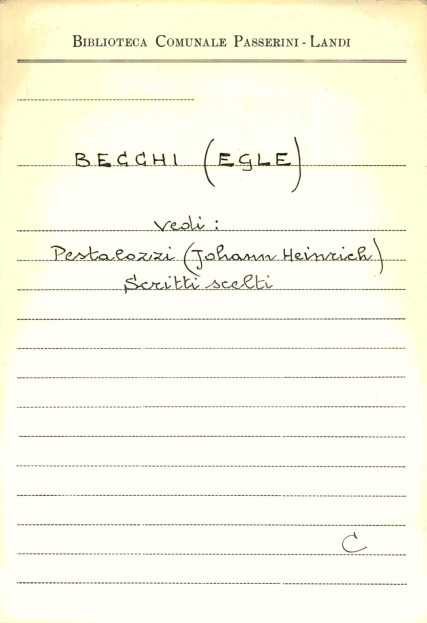 BIBLIOTECA COMUNALE PASSERINI - LANDI
BECCHI (EGLE)
Vedi :
Pestalozzi (Johann Heinrich)
Scritti scelti
C